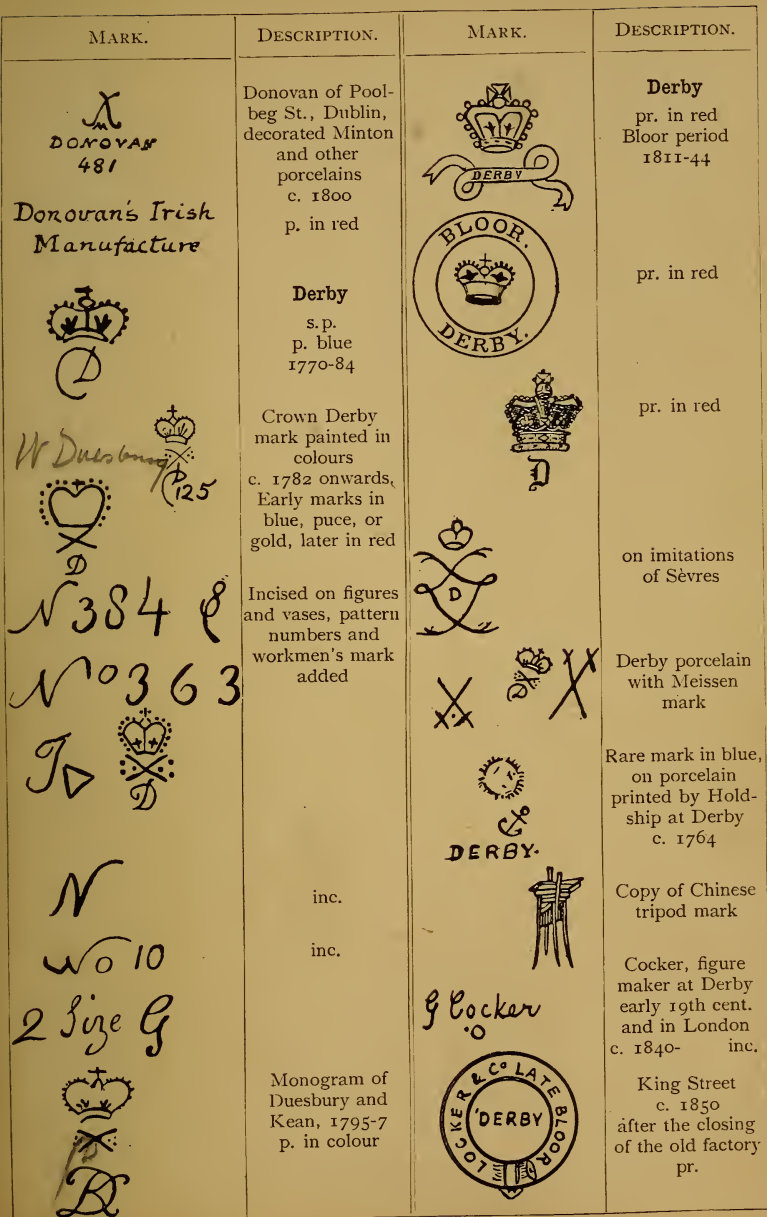 MARK.
DESCRIPTION.
DONOVAN
481
Donovan's Irish
Manufacture
Donovan of Pool-
beg St., Dublin,
decorated Minton
and other
porcelains
c. 1800
p. in red
D
Derby
s.p.
p. blue
1770-84
W Duesbury
D
125
D
Crown Derby
mark painted in
colours
c. 1782 onwards,
Early marks in
blue, puce, or
gold, later in red
N 384
No 363
D
Incised on figures
and vases, pattern
numbers and
workmen's mark
added
N
inc.
No 10
inc.
2 Size G
Monogram of
Duesbury and
Kean, 1795-7
p. in colour
MARK.
DESCRIPTION.
DERBY
Derby
pr. in red
Bloor period
1811-44
BLOOR.
DERBY.
pr. in red
D
pr. in red
D
on imitations
of Sèvres
D
Derby porcelain
with Meissen
mark
DERBY.
Rare mark in blue,
on porcelain
printed by Hold-
ship at Derby
c. 1764
Copy of Chinese
tripod mark
G Cocker
Cocker, figure
maker at Derby
early 19th cent.
and in London
c. 1840- inc.
LOCKER & Co LATE BLOOR
DERBY
King Street
c. 1850
after the closing
of the old factory
pr.